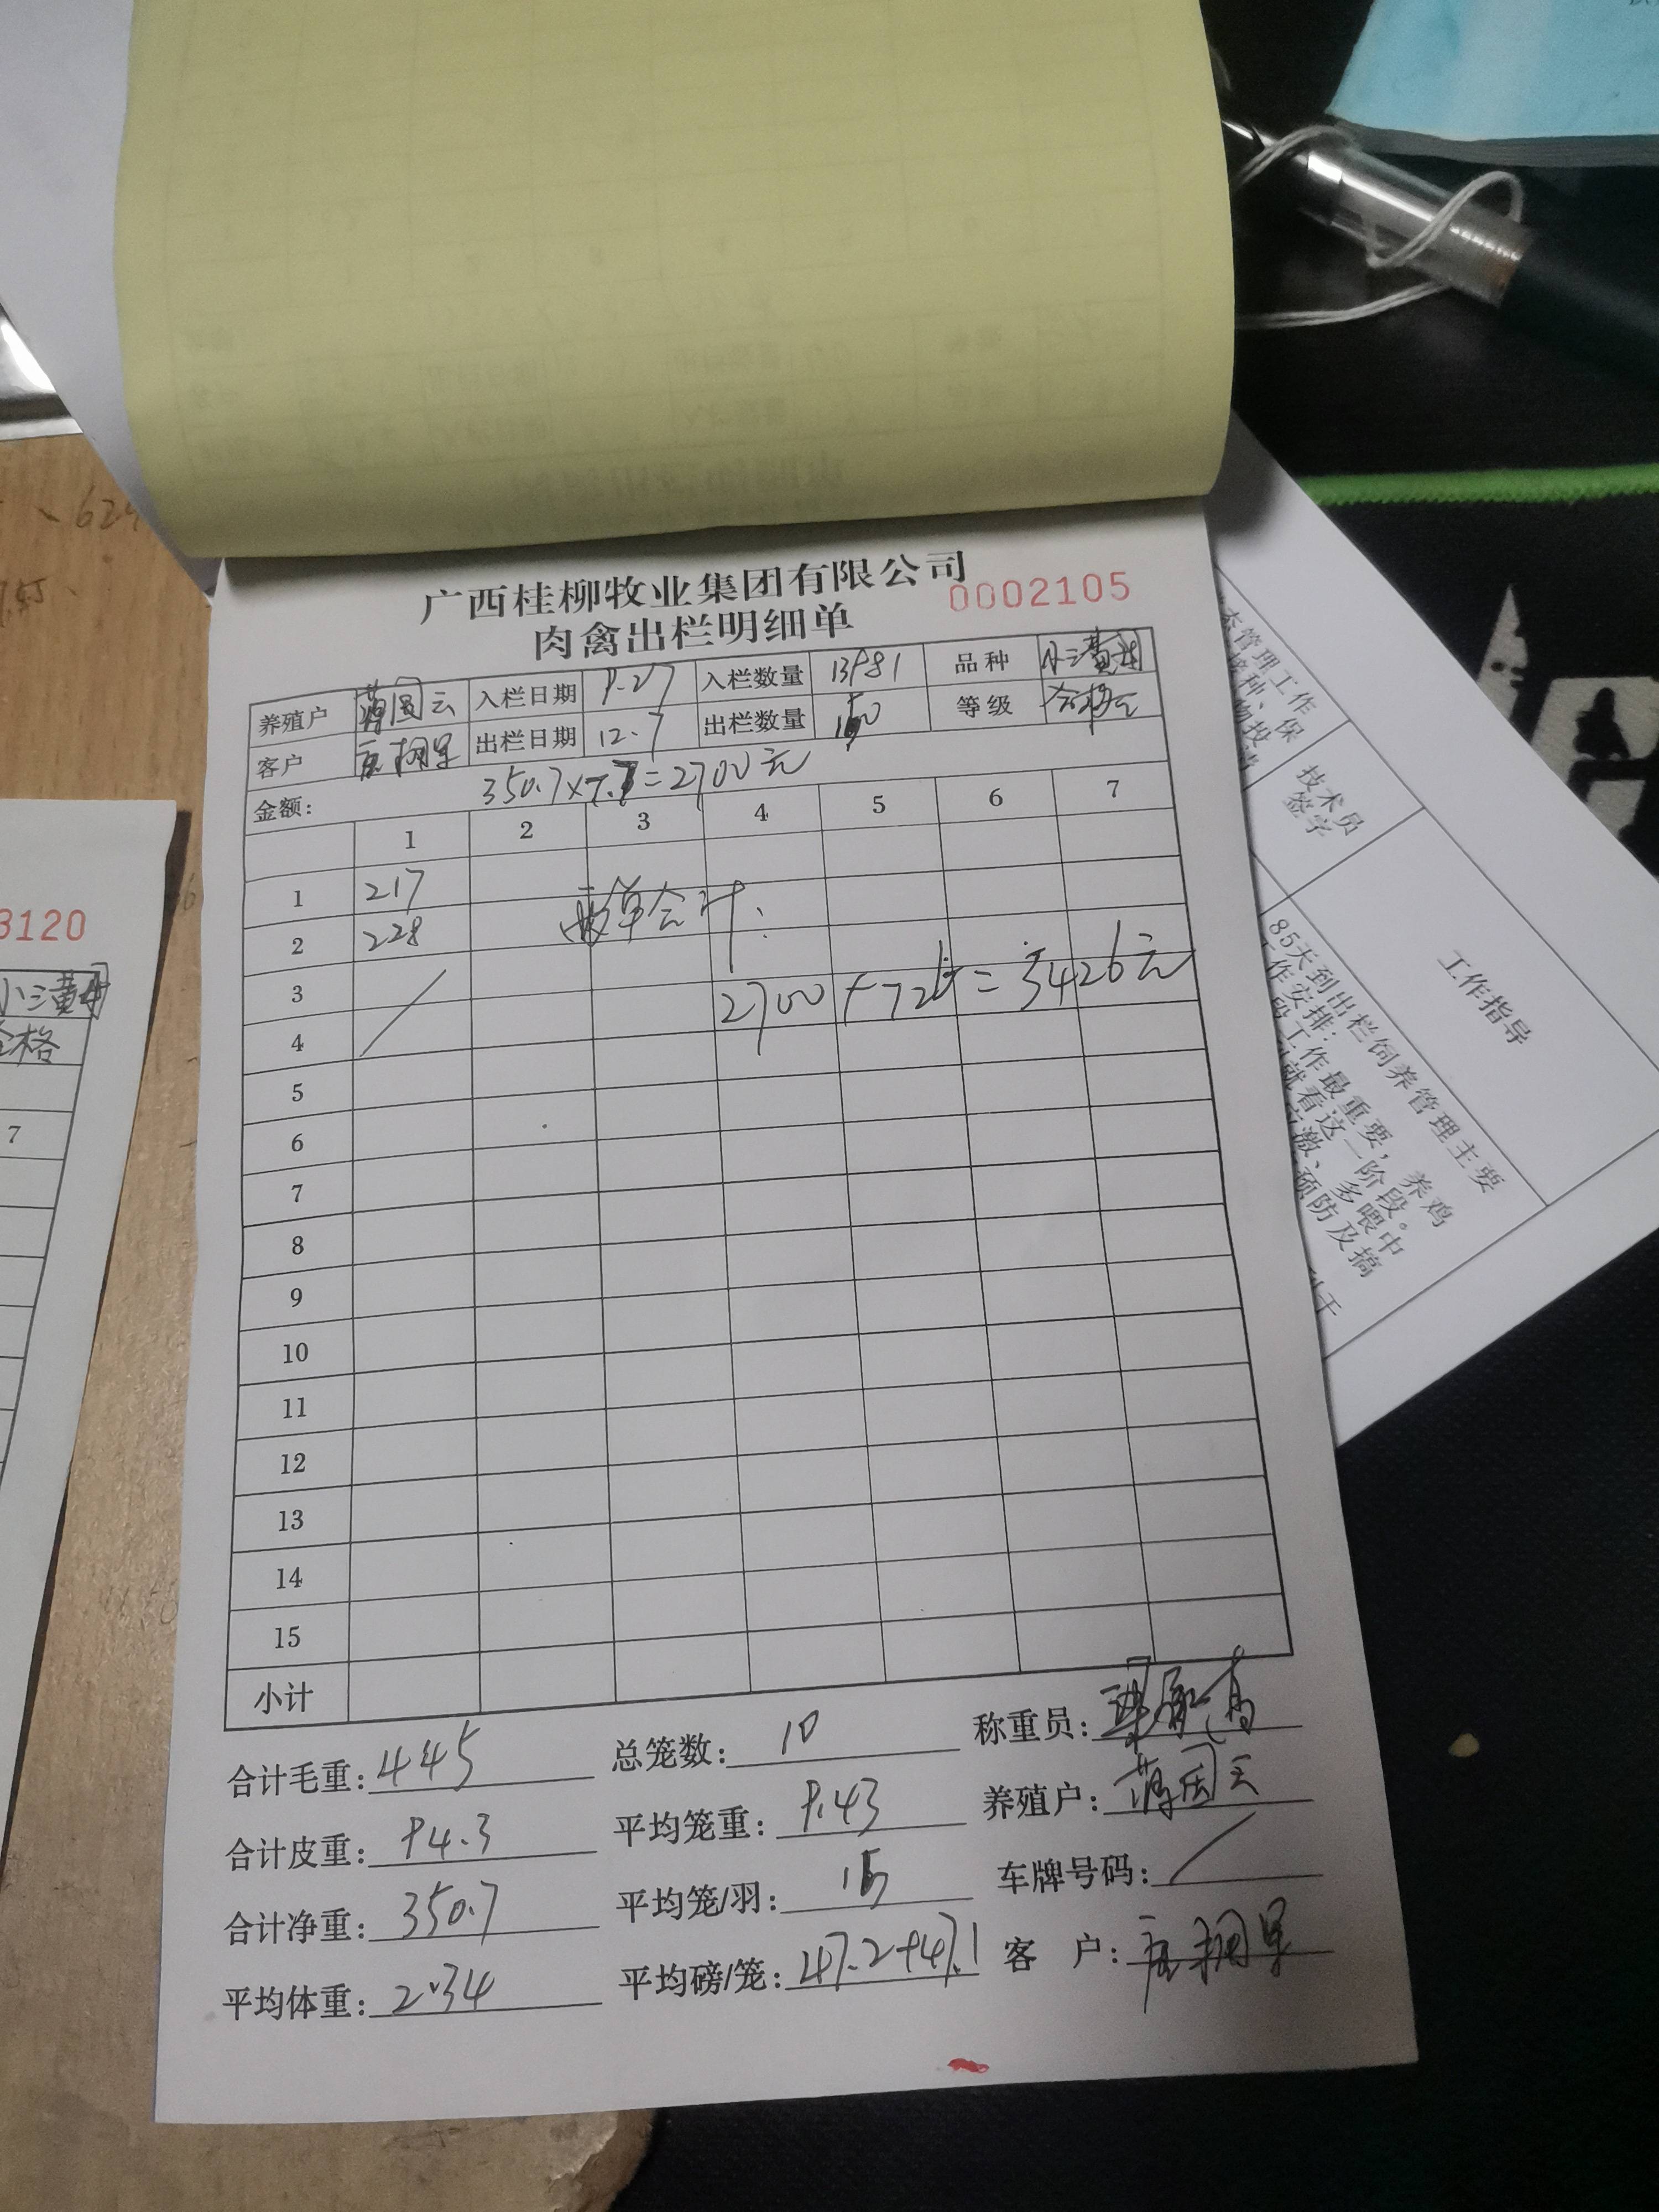 广西桂柳牧业集团有限公司
0002105
肉禽出栏明细单
养殖户 蒋国云 入栏日期 9.27 入栏数量 13981 品种 小三黄
客户 出栏日期 12.7 出栏数量 150 等级 合格
金额: 350.7×7.7=2700元
1 2 3 4 5 6 7
1 217
2 228 两单合计:
3 2700+726=3426元
4
5
6
7
8
9
10
11
12
13
14
15
小计
合计毛重: 445 总笼数: 10 称重员:
合计皮重: 94.3 平均笼重: 9.43 养殖户: 蒋国云
合计净重: 350.7 平均笼/羽: 15 车牌号码: /
平均体重: 2.34 平均磅/笼: 47.2+47.1 客 户:
3120
小三黄
合格
7
技术员
签字
工作指导
85天到出栏饲养管理主要
工作安排:
段工作最重要,养鸡
就看这一阶段。
激、多喂中
预防及搞
态管理工作
接种、保
物投